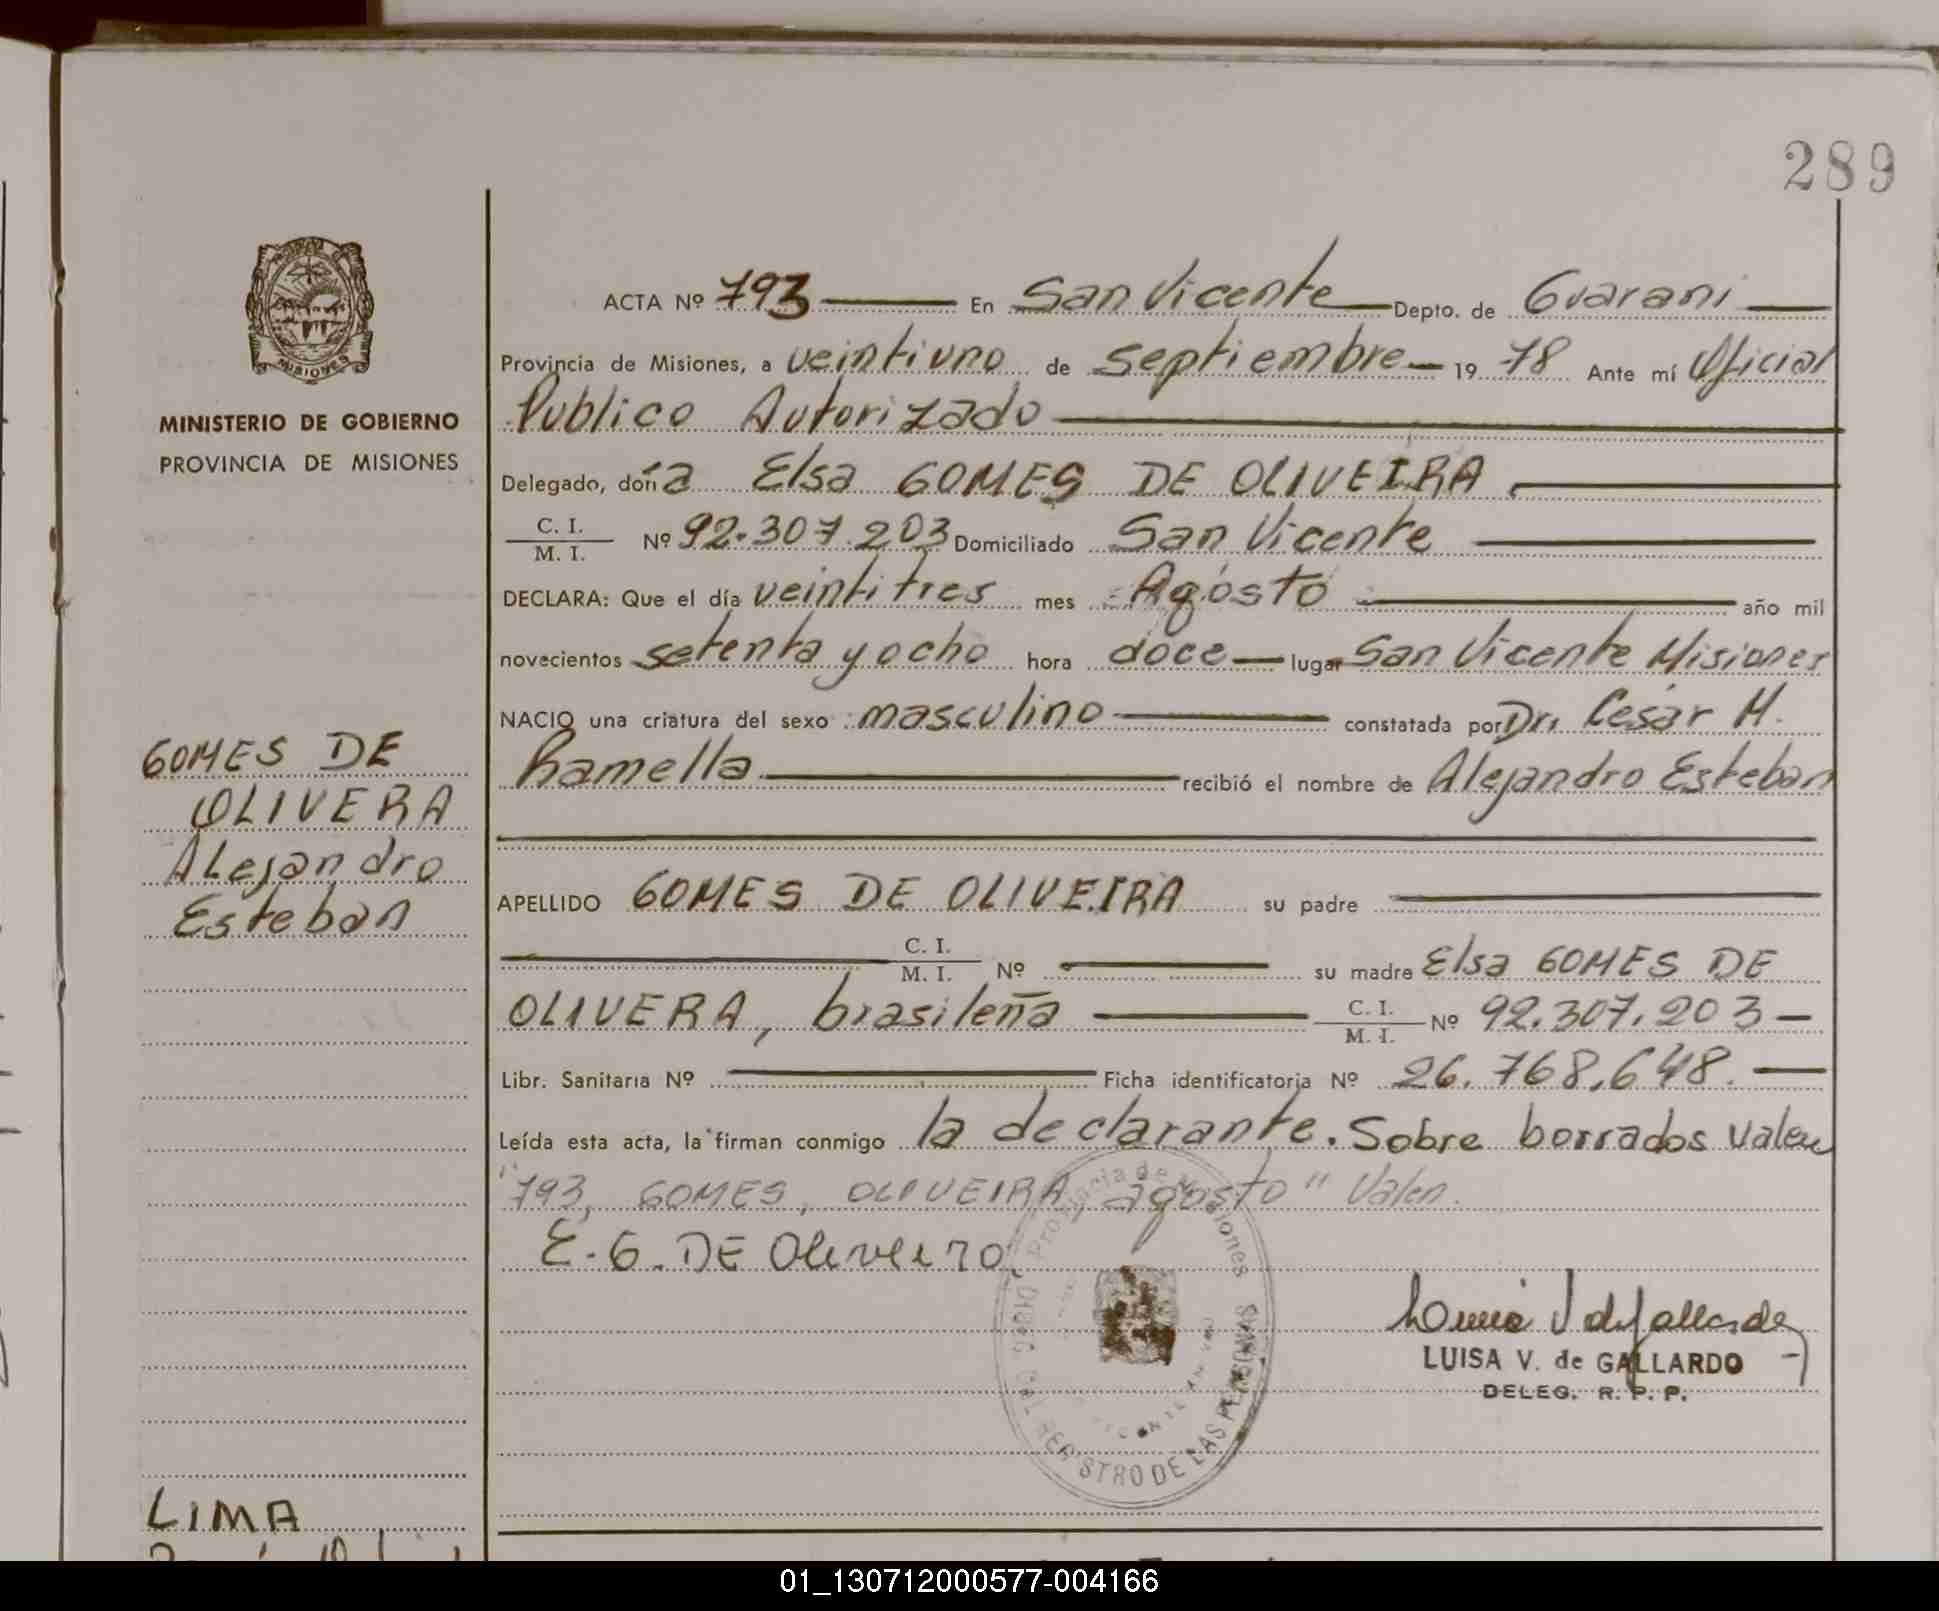 289
ACTA Nº 793 En San Vicente Depto. de Guarani
Provincia de Misiones, a veintiuno de septiembre 19 78 Ante mí Oficial
Publico Autorizado
MINISTERIO DE GOBIERNO
PROVINCIA DE MISIONES
MISIONES
Delegado, doña Elsa GOMES DE OLIVEIRA
C. I.
M. I. Nº 92.307.203 Domiciliado San Vicente
DECLARA: Que el día veintitres mes Agosto año mil
novecientos setenta y ocho hora doce lugar San Vicente Misiones
NACIO una criatura del sexo masculino constatada por Dr. César M.
Ramella recibió el nombre de Alejandro Esteban
GOMES DE
OLIVERA
Alejandro
Esteban
APELLIDO GOMES DE OLIVEIRA su padre
C. I.
M. I. Nº su madre Elsa GOMES DE
OLIVERA, brasileña C. I.
M. I. Nº 92.307.203
Libr. Sanitaria Nº Ficha identificatoria Nº 26.768.648.
Leída esta acta, la firman conmigo la declarante. Sobre borrados valen
"793, GOMES, OLIVEIRA agosto" Valen.
E. G. DE Oliveiro
Provincia de Misiones
REGISTRO DE LAS PERSONAS
LUISA V. de GALLARDO
DELEG. R. P. P.
LIMA
01_130712000577-004166